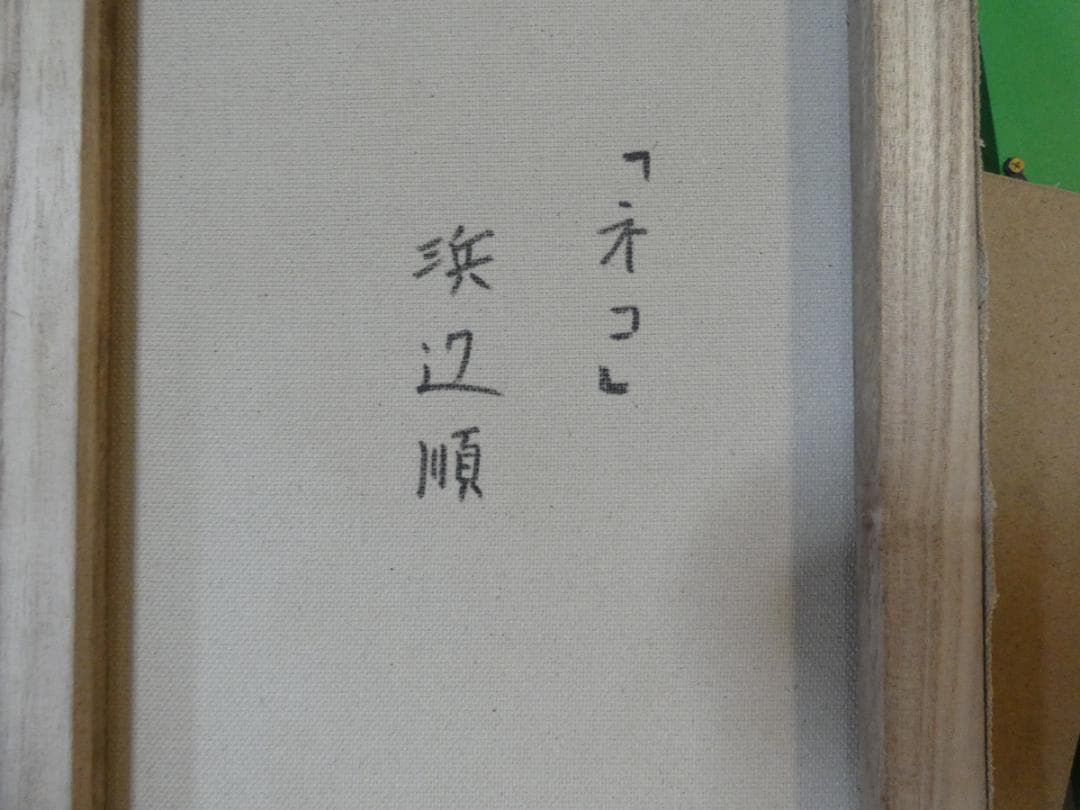 「ネコ」
浜辺順